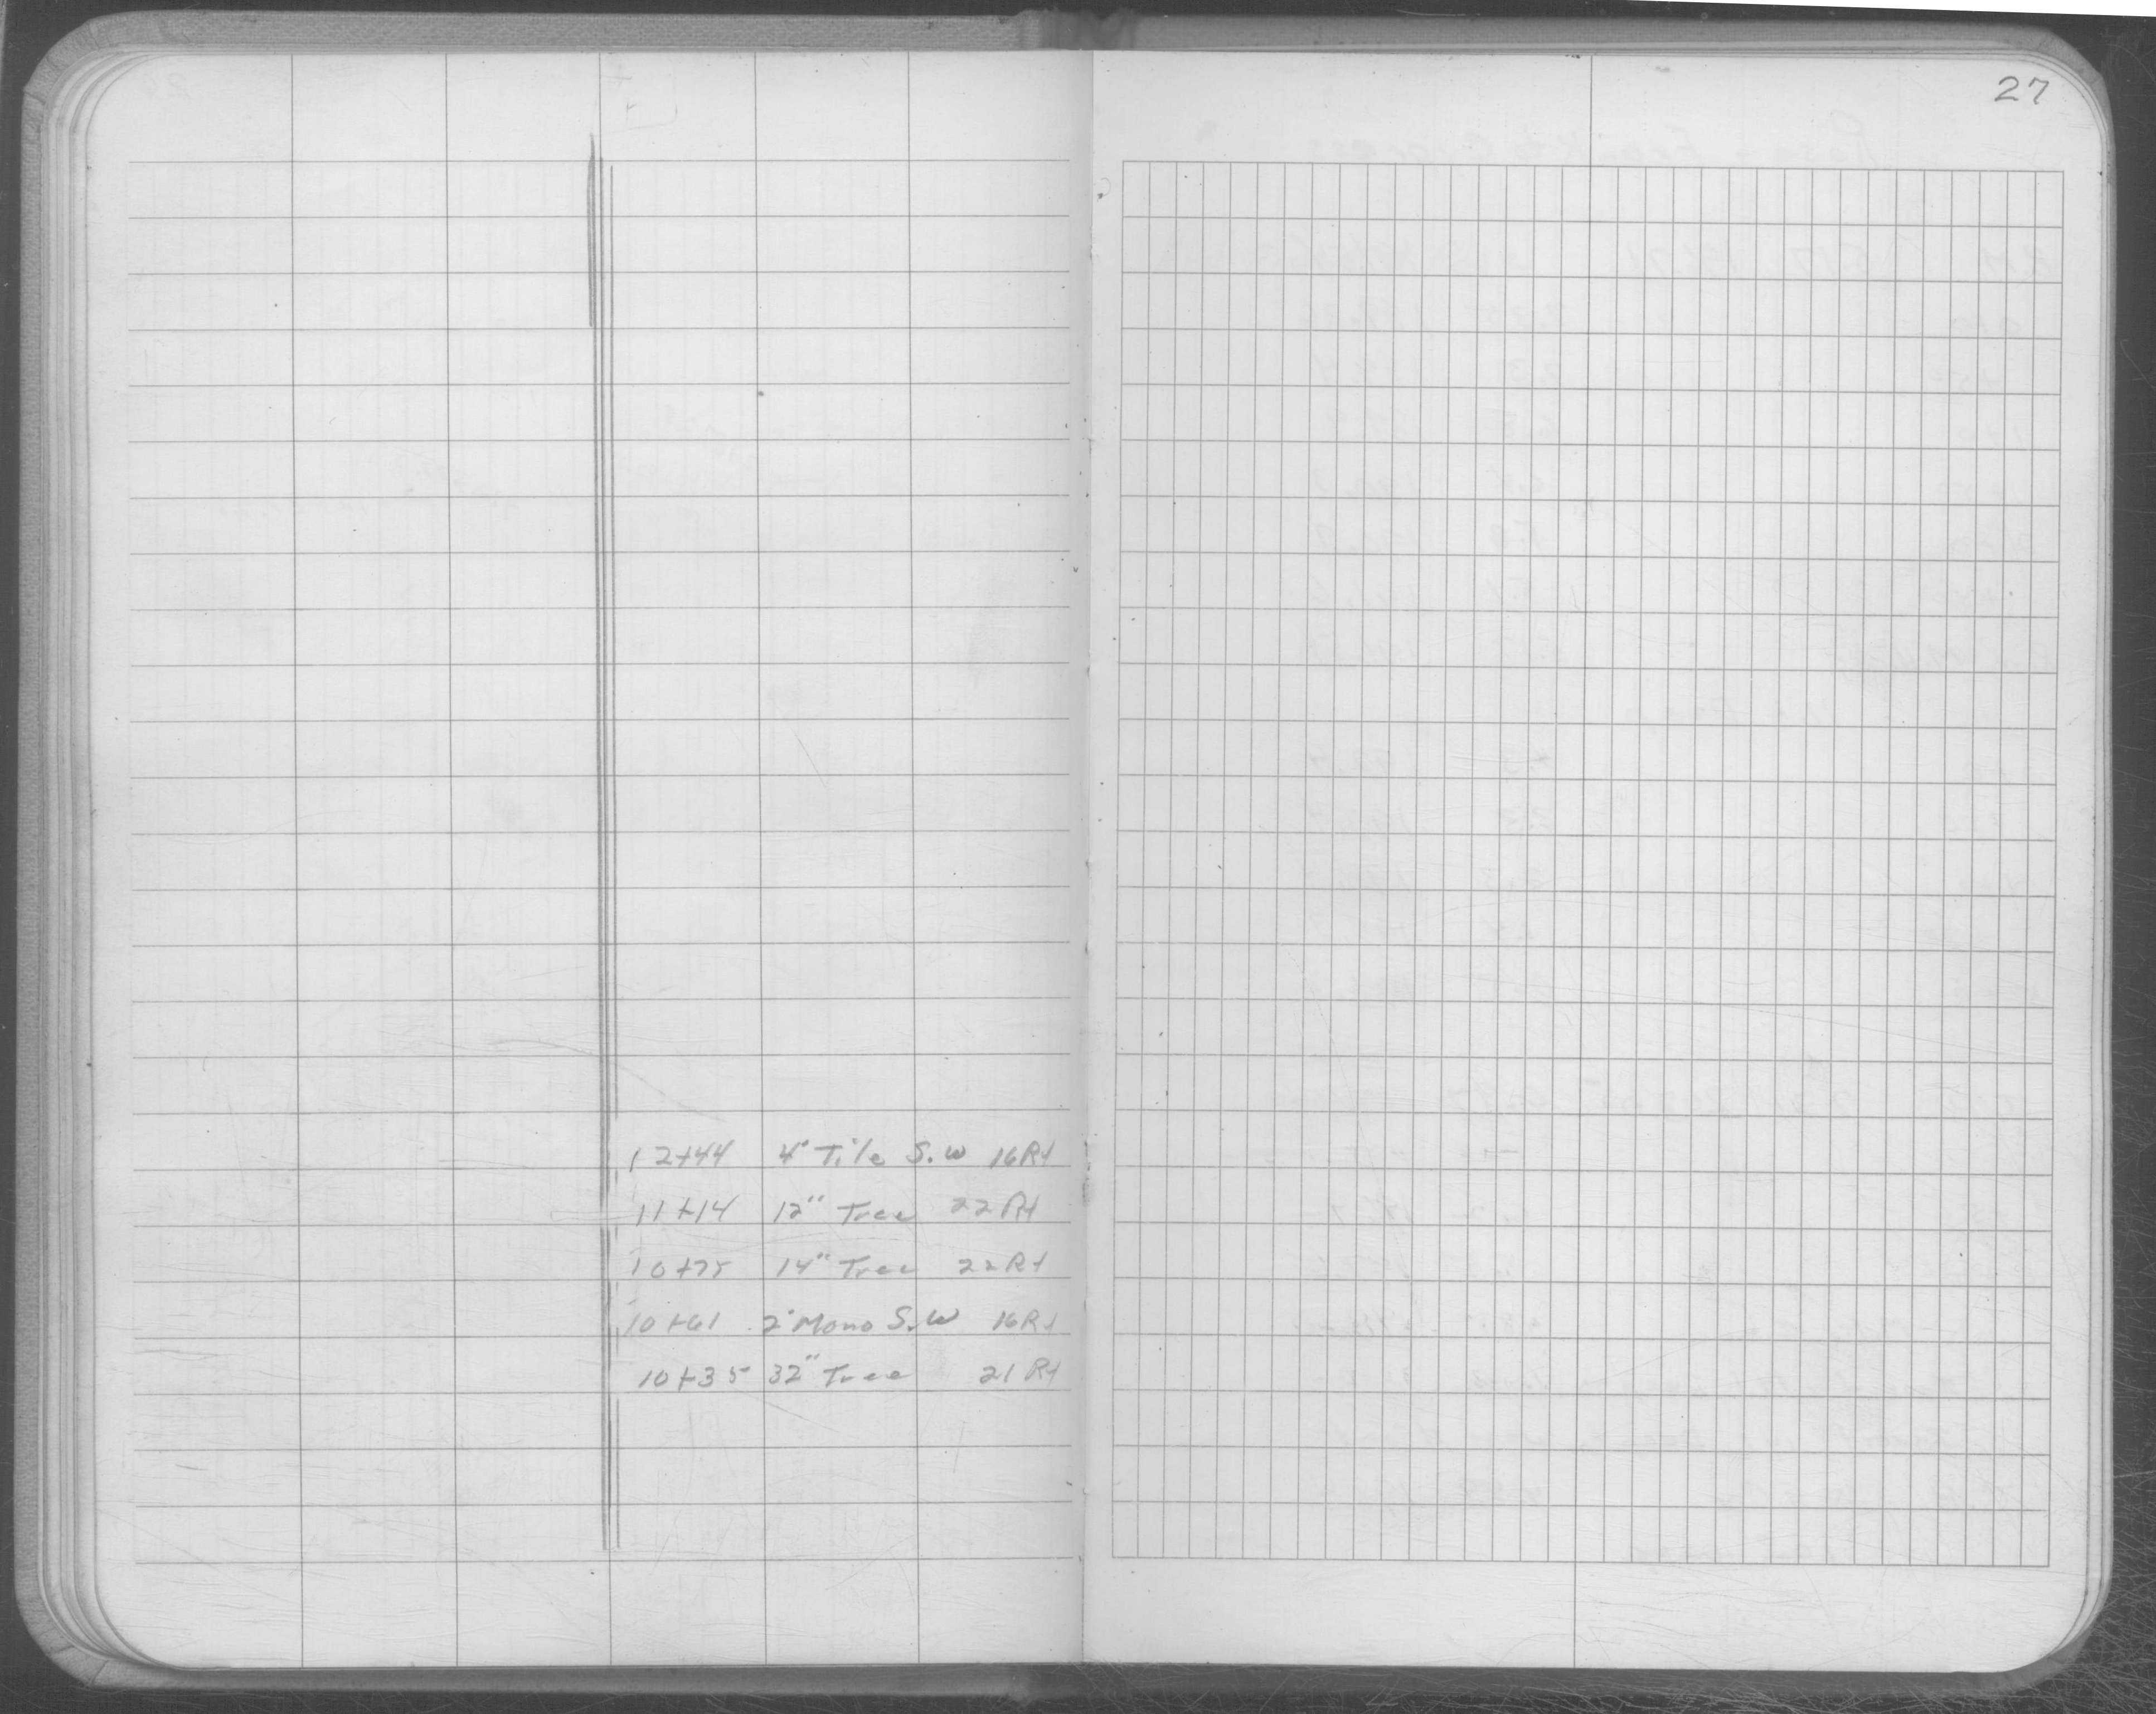 27
12+44 4" Tile S.W 16 Rt
11+14 12" Tree 22 Rt
10+75 14" Tree 22 Rt
10+61 2" Mono S.W 16 Rt
10+35 32" Tree 21 Rt